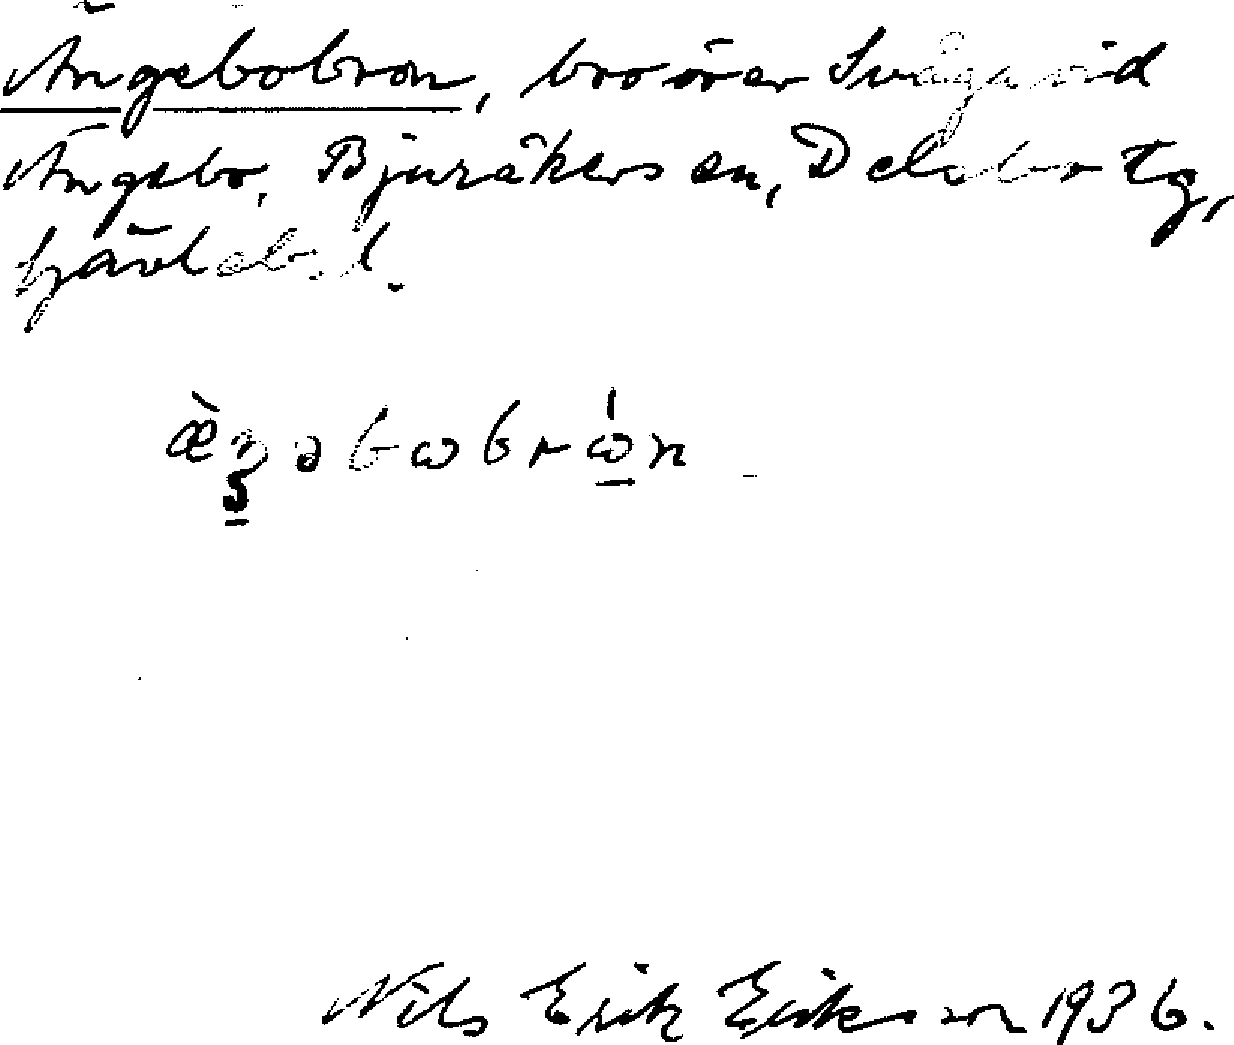 Ängebobron, bro över Svågan vid
Ängebo, Bjuråkers sn, Delsbo tg,
Gävlebgs l.
æ̀ŋəbωbrώ̲n
Nils Erik Eriksson 1936.